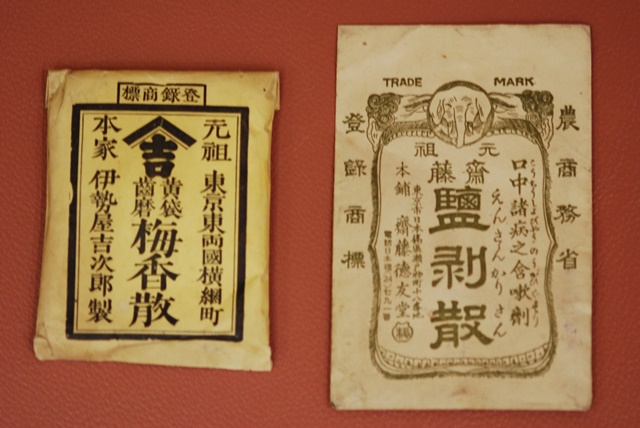 登錄商標
元祖 東京東両國横綱町
吉
黄袋
齒磨
梅香散
本家 伊勢屋吉次郎 製
TRADE MARK
農商務省
登録商標
元祖
齋藤
口中諸病之含嗽劑
えんさんかりさん
鹽剥散
東京市日本橋區瀬戸物町十八番地
本舗 齋藤徳友堂